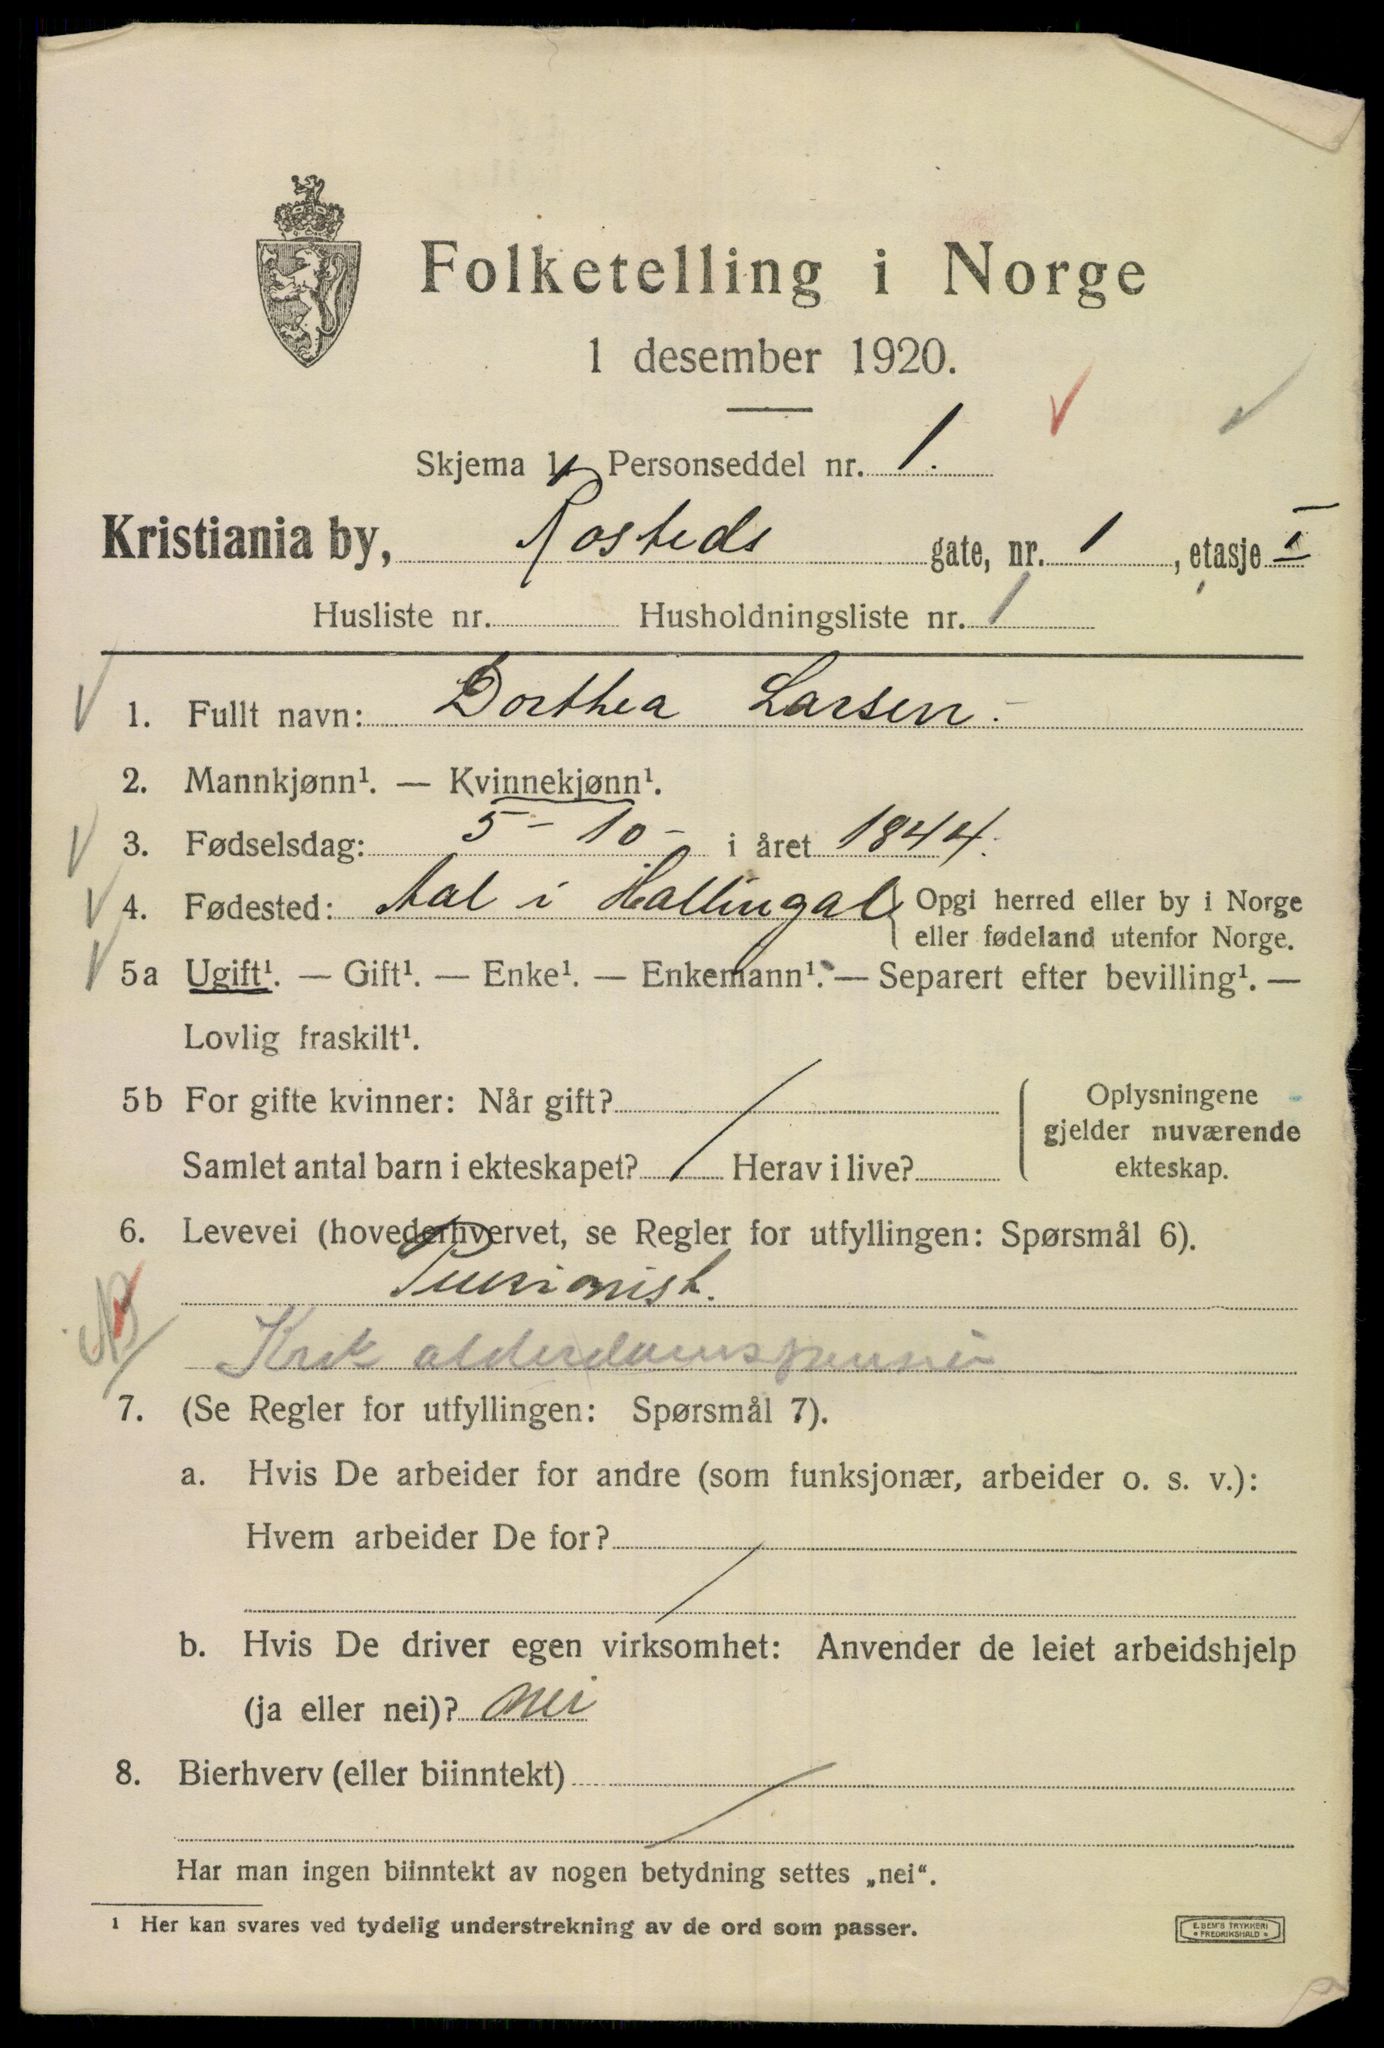 Folketelling i Norge
1 desember 1920.
Skjema 1. Personseddel nr. 1.
Kristiania by, Rosteds gate, nr. 1, etasje I
Husliste nr. Husholdningsliste nr. 1
1. Fullt navn: Dorthea Larsen.
2. Mannkjønn¹. — Kvinnekjønn¹.
3. Fødselsdag: 5 - 10 - i året 1844.
4. Fødested: Aal i Hallingdal { Opgi herred eller by i Norge
eller fødeland utenfor Norge.
5a Ugift¹. — Gift¹. — Enke¹. — Enkemann¹. — Separert efter bevilling¹. —
Lovlig fraskilt¹.
5b For gifte kvinner: Når gift? /
Samlet antal barn i ekteskapet? / Herav i live?
Oplysningene
gjelder nuværende
ekteskap.
6. Levevei (hovederhvervet, se Regler for utfyllingen: Spørsmål 6).
Pensionist.
NB Krst alderdomspension
7. (Se Regler for utfyllingen: Spørsmål 7).
a. Hvis De arbeider for andre (som funksjonær, arbeider o. s. v.):
Hvem arbeider De for? /
b. Hvis De driver egen virksomhet: Anvender de leiet arbeidshjelp
(ja eller nei)? nei
8. Bierhverv (eller biinntekt) /
Har man ingen biinntekt av nogen betydning settes „nei“.
¹ Her kan svares ved tydelig understrekning av de ord som passer.
E. SEM'S TRYKKERI
• FREDRIKSHALD •